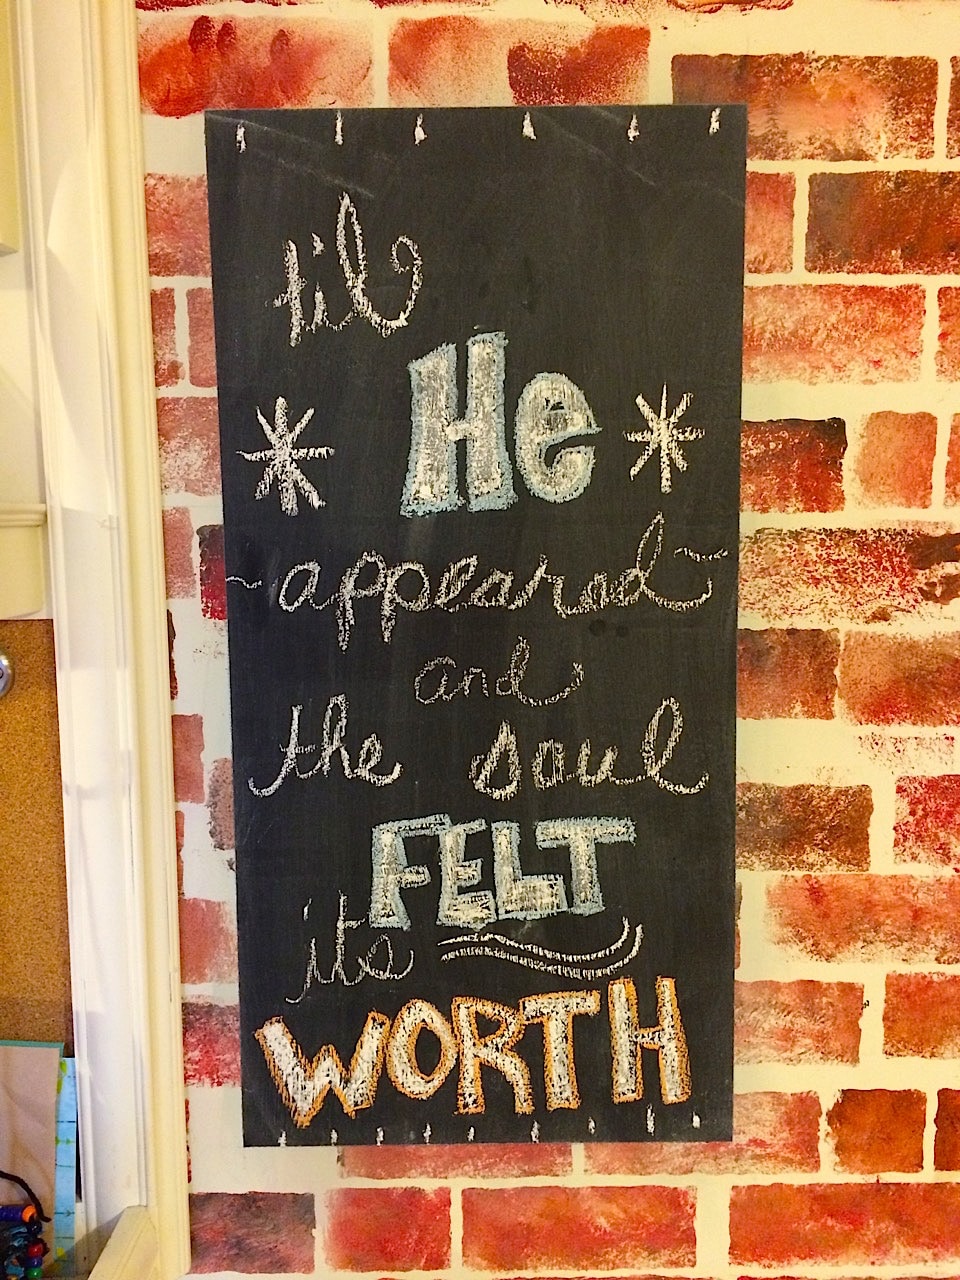 til
He
~appeared~
and
the soul
FELT
its
WORTH